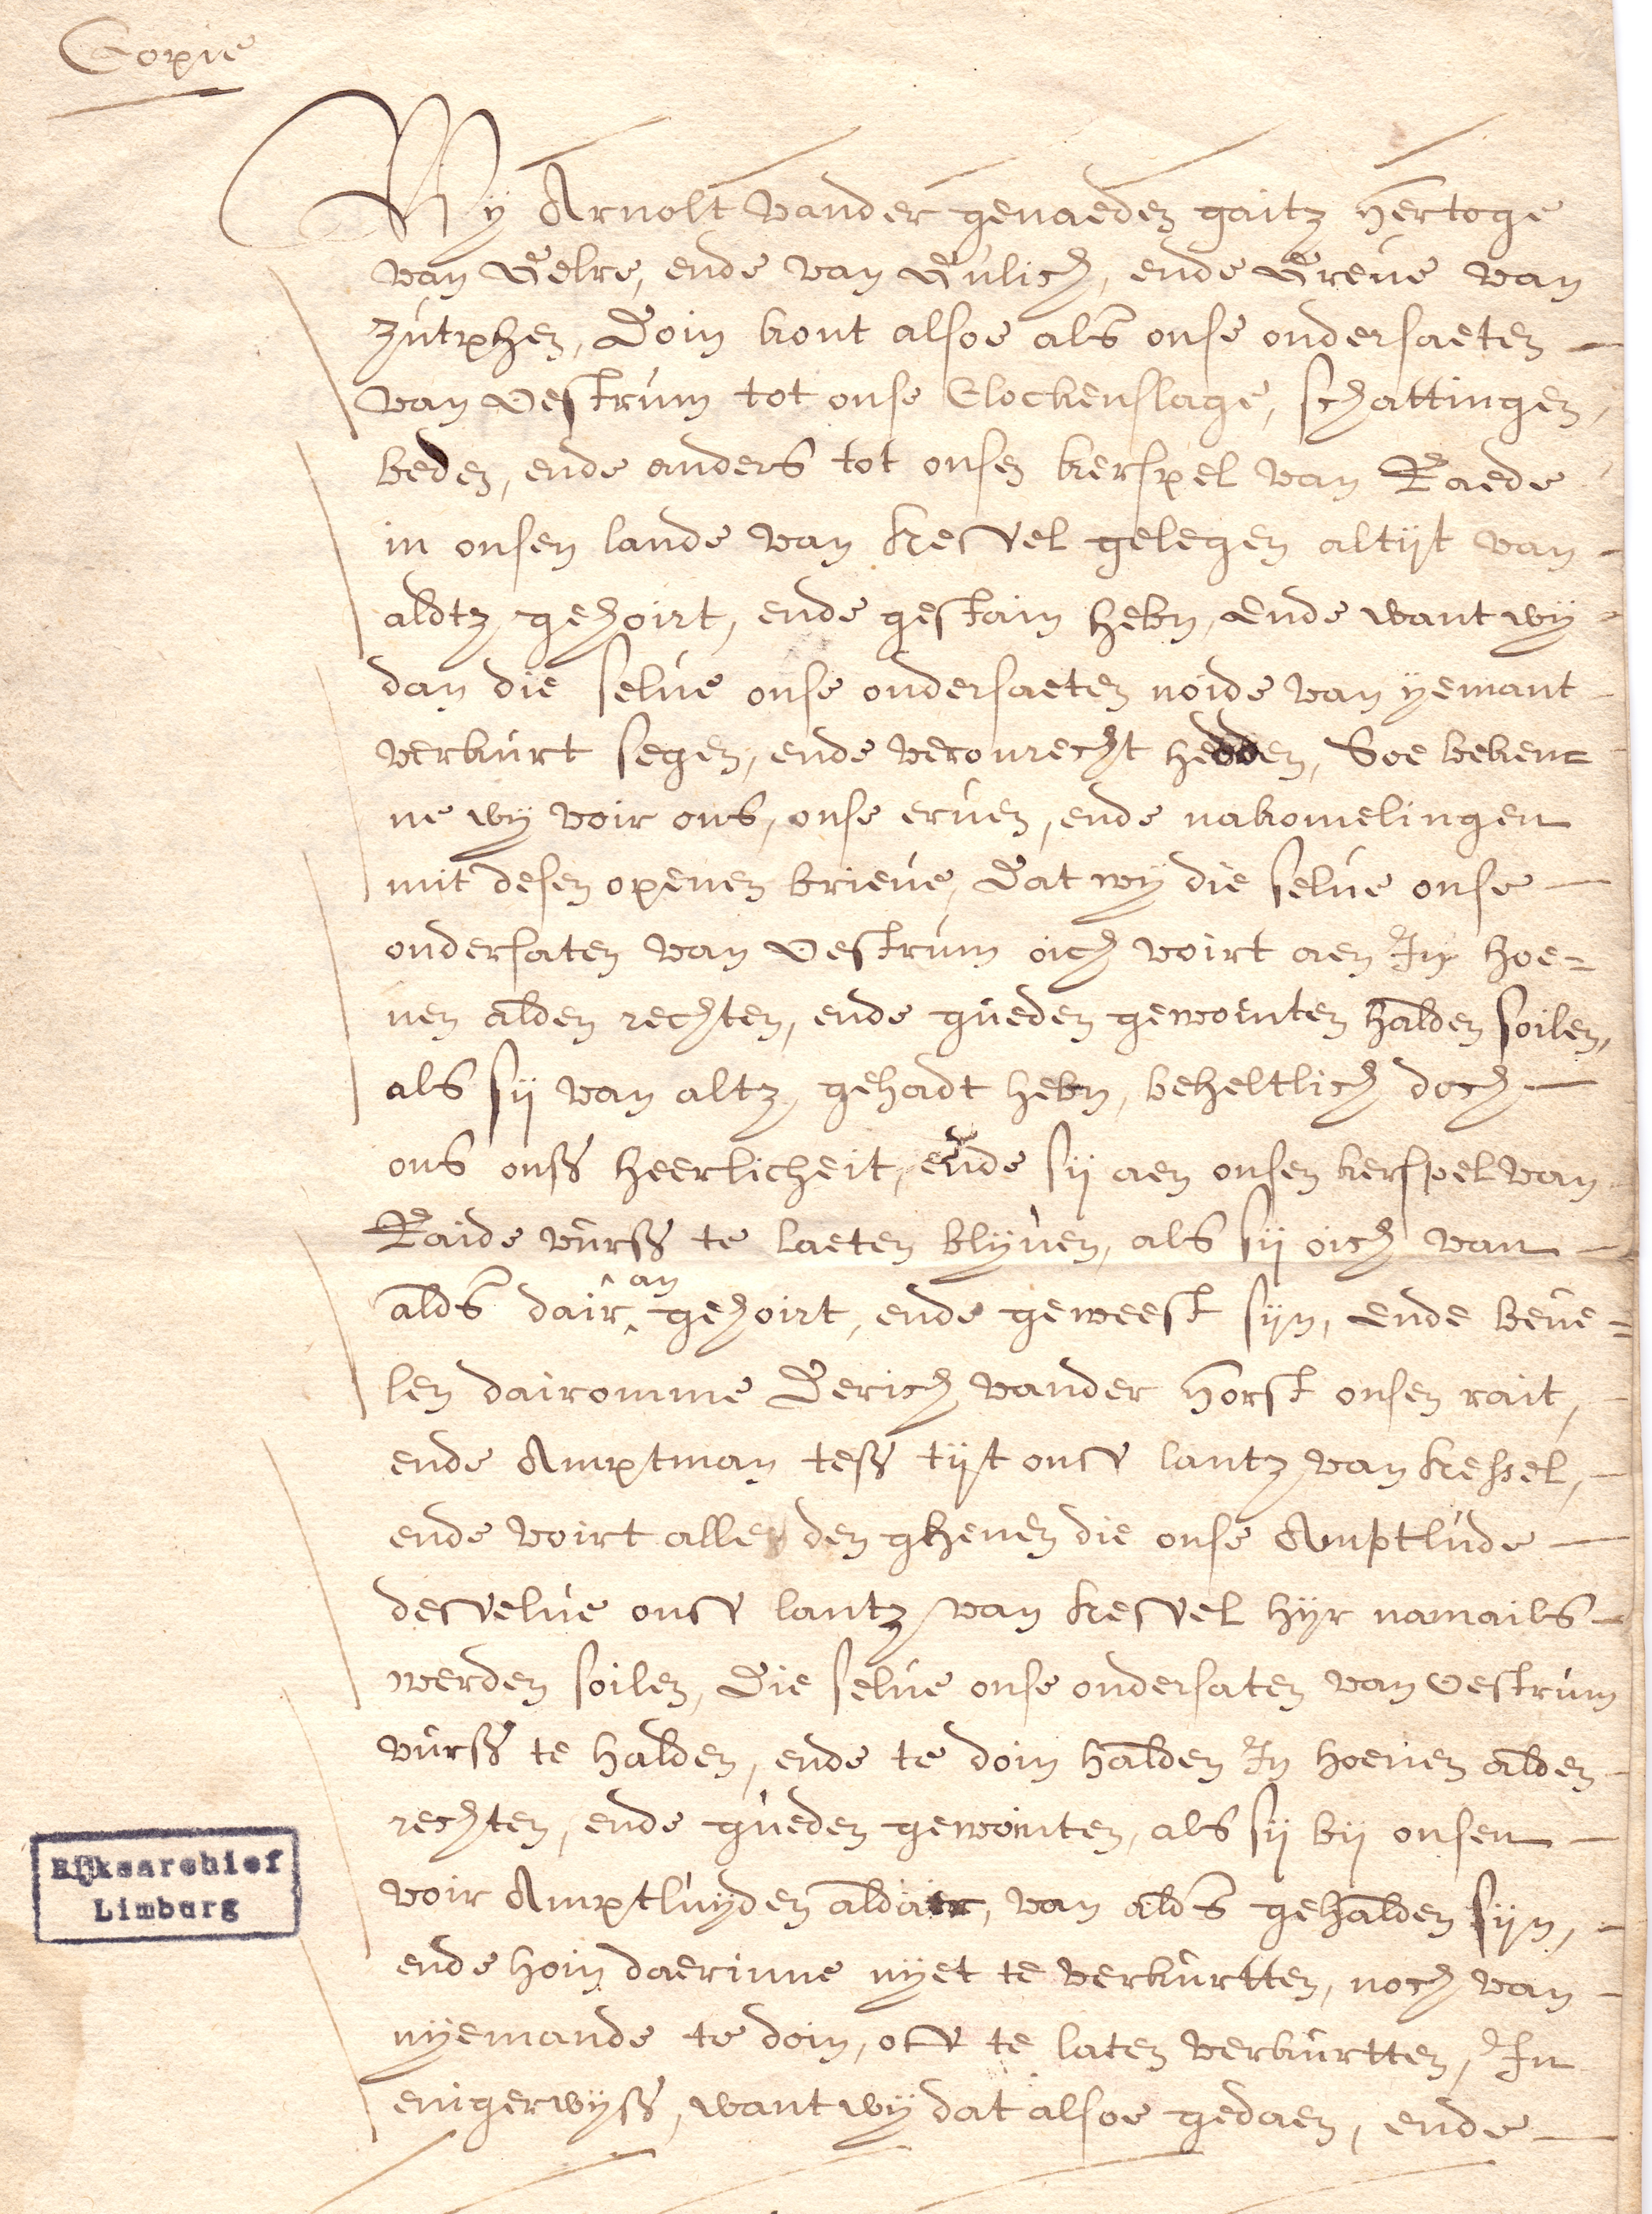 Copie
Wy Arnolt vander genaeden gaitz Hertoge
van Gelre, ende van Gulich, ende Greue van
Zutphen, Doin kont alsoe als onse ondersaeten
van Oestrum tot onse Clockenslage, schattingen,
beden, ende anders tot onsen kerspel van Raede
in onsen lande van Kessel gelegen altijt van
aldtz gehoirt, ende gestain hebn, Ende want wy
dan die selue onse ondersaeten noide van yemant
verkurt segen, ende veronrecht hedden, Soe beken=
ne wy voir ons, onse eruen, ende nakomelingen
mit desen openen brieue, Dat wy die selue onse
ondersaten van Oestrum oich voirt aen In hoe=
nen alden rechten, ende gueden gewoenten halden soilen,
als sij van altz, gehadt hebn, beheltlich doch
ons onss heerlicheit, ende sij aen onsen kerspel van
Raide vurss te laeten blyuen, als sij oich van
alds dair an gehoirt, ende geweest sijn, Ende beue=
len dairomme Derich vander Horst onsen rait,
ende Amptman tess tijt onss lantz van Kessel,
ende voirt alle den ghenen die onse Amptlude
desselue onss lantz van Kessel hijr namails
werden soilen, Die selue onse ondersaten van Oestrum
vurss te halden, ende te doin halden In hoenen alden
rechten, ende gueden gewointen, als sij bij onsen
voir Amptluyden aldair, van alds gehalden sijn,
ende hoin daerinne nyet te verkurtten, noch van
nyemande te doin, off te laten verkurtten, In
enigerwyss, want wy dat alsoe gedaen, ende
Rijksarchief
Limburg